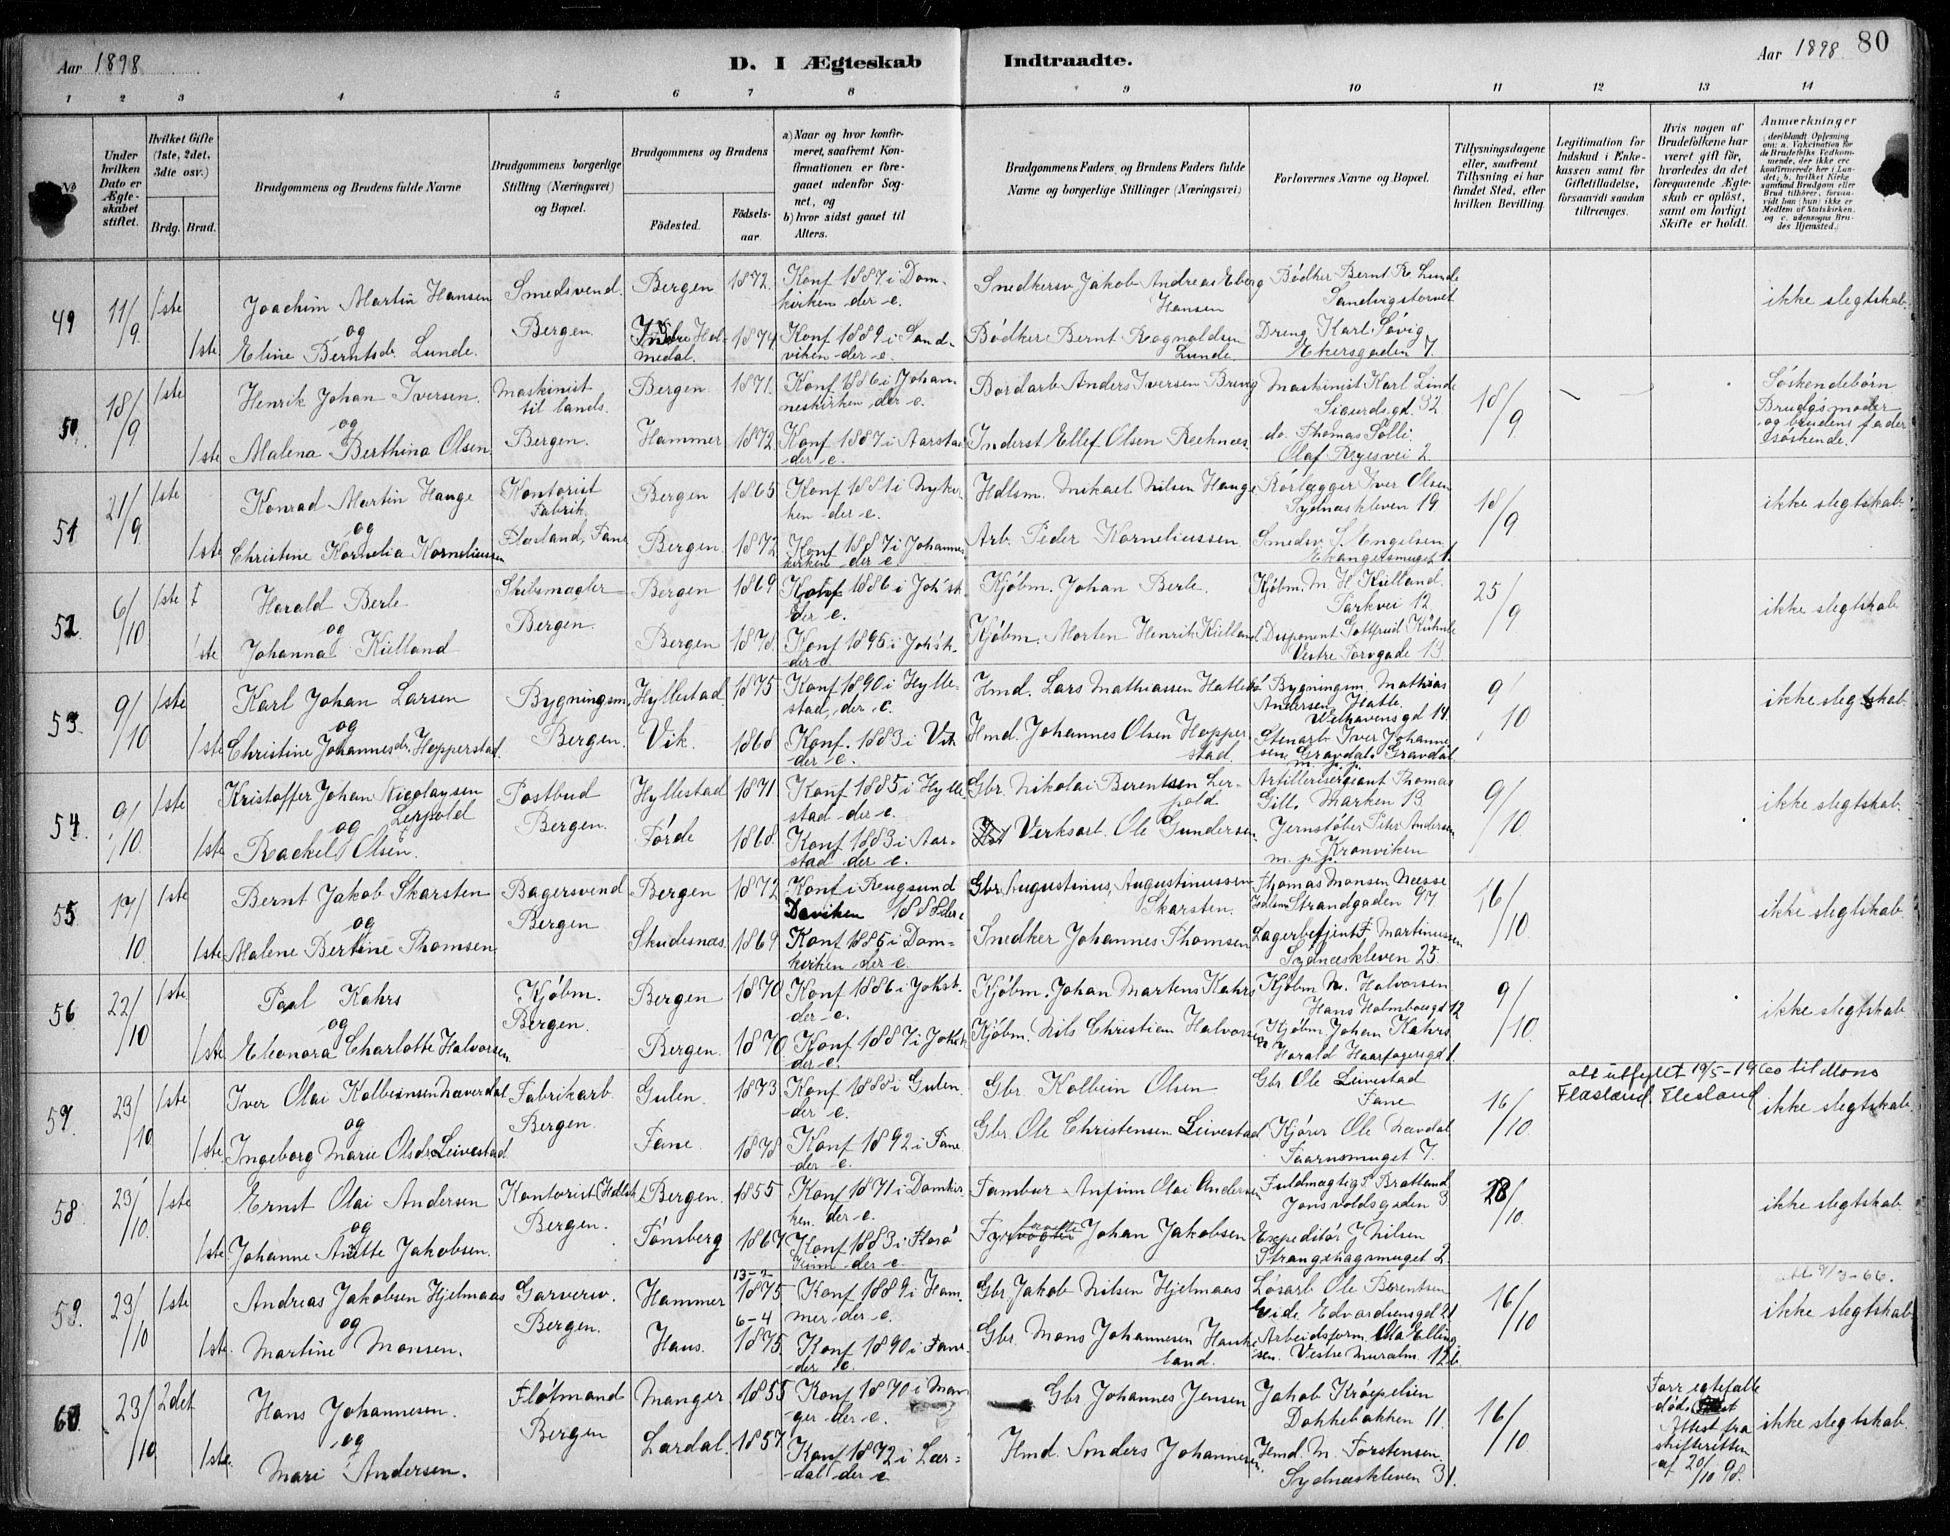 Aar 1898
D. I Ægteskab Indtraadte.
Aar 1898 80
1 2 3 4 5 6 7 8 9 10 11 12 13 14
Under hvilken Dato er Ægteskabet stiftet.
Hvilket Gifte (1ste, 2det, 3die osv.)
Brdg. Brud.
Brudgommens og Brudens fulde Navne
Brudgommens borgerlige Stilling (Næringsvei) og Bopæl.
Brudgommens og Brudens
Födested. Födsels-aar.
a) Naar og hvor konfirmeret, saafremt Konfirmationen er foregaaet udenfor Sognet, og
b) hvor sidst gaaet til Alters.
Brudgommens Faders og Brudens Faders fulde Navne og borgerlige Stillinger (Næringsvei)
Forlovernes Navne og Bopæl.
Tillysningsdagene eller, saafremt Tillysning ei har fundet Sted, efter hvilken Bevilling.
Legitimation for Indskud i Enkekassen samt for Giftetilladelse, forsaavidt saadan tiltrænges.
Hvis nogen af Brudefolkene har været gift før, hvorledes da det foregaaende Ægteskab er opløst, samt om lovligt Skifte er holdt.
Anmærkninger
49 11/9 1ste Joachim Martin Hansen Smedsvend Bergen 1872 Konf 1887 i Domkirken der e. Snedkersv Jakob Andreas Eberg Hansen Bødker Bernt R. Lunde Sandvigstorvet ikke slegtskab
og Bergen.
1ste Eline Berntsdr. Lunde. Indre Holmedal. 1874 Konf 1889 i Sandviken der e. Bødker Bernt Rognaldsen Lunde. Dreng Karl Søvig Ekersgaden 7.
50 18/9 1ste Henrik Johan Iversen. Maskinist til lands. Bergen 1871. Konf 1886 i Johanneskirken der e. Bordarb Anders Iversen Bring Maskinist Karl Linde Sigurdsgd. 32 18/9 Søskendebørn Brudg's moder og brudens fader søskende.
og
1ste Malena Berthina Olsen Bergen. Hammer 1872 Konf 1887 i Aarstad der e. Inderst Ellef Olsen do. Thomas Solli. Olaf Ryesvei 2
51 21/9 1ste Konrad Martin Hauge Kontorist Fabrik. Bergen 1865 Konf 1881 i Nykirken der e. Hdlsm. Mikael Nilsen Hauge Rørlægger Iver Olsen Sydneskleven 19 18/9 ikke slegtskab
og
1ste Christene Kornelia Korneliussen Flesland, Fane Bergen. 1872 Konf 1887 i Johanneskirken der e Arb. Peder Korneliussen. Smedsv S. Engelsen
52 6/10 1ste Harald Berle Skibsmægler Bergen 1869 Konf 1886 i Joh'sk. der e. Kjøbm. Johan Berle. Kjøbm. M. H. Kielland. Parkvei 12 25/9 ikke slegtskab
og Bergen.
1ste Johanna Kielland Bergen 1878 Konf 1895 i Joh'sk. der e Kjøbm. Morten Henrik Kielland Disponent Gottfried Kühnle Vestre Torvgade 13
53 9/10 1ste Karl Johan Larsen Bygningsm. Hyllestad 1875 Konf 1890 i Hyllestad, der e. Hmd. Lars Mathiassen Hatle Bygningsm. Mathias Andersen Hatle. Welhavensgd 14. 9/10 ikke slegtskab.
og
1ste Christine Johannesdr. Hopperstad. Bergen. Vik. 1868 Konf. 1883 i Vik der e. Hmd. Johannes Olsen Hopperstad. Stenarb Iver Johannesen Gravdal. Gravdal m. p. p.
54 9/10 1ste Kristoffer Johan Nicolaysen Lerpold Postbud Hyllestad 1871 Konf 1885 i Hyllestad der e. Gbr. Nikolai Berentsen Lerpold Artillerisergeant Thomas Gill. Marken 13. 9/10 ikke slegtskab.
og Bergen.
1ste Rackel Olsen. Førde 1868. Konf 1883 i Aarstad der e. Verksarb. Ole Gundersen Jernstøber Peter Andersen Kronviken m. p. p.
55 1ste Bernt Jakob Skarsten Bagersvend Bergen 1872 Konf i Rugsund Daviken 1888 der e Gbr. Augustinus Augustinussen Skarsten. Thomas Monsen Næsse Strandgaden 97 16/10 ikke slegtskab
og Bergen
10 1ste Malene Bertine Thomsen Skudesnæs 1869 Konf 1885 i Domkirken der e. Snedker Johannes Thomsen Lagerbetjent F. Martinussen Sydneskleven 25.
56 22/10 1ste Paal Kahrs Kjøbm. Bergen 1870 Konf 1886 i Johsk. der e. Kjøbm. Johan Martens Kahrs Kjøbm N. Halvorsen Hans Holmboesgd 12 9/10 ikke slegtskab
og Bergen.
1ste Eleonora Charlotte Halvorsen. Bergen. 1870 Konf 1887 i Johsk. der e. Kjøbm. Nils Christian Halvorsen Kjøbm. Johan Kahrs Harald Haarfagersgd 1.
att utfylt 19/5-1960 til Mons Flesland. Flesland
57 23/10 1ste Iver Olai Kolbeinsen Fabrikarb. Gulen. 1873 Konf 1888 i Gulen. der e. Gbr. Kolbein Olsen Gbr Ole Leivestad Fane 16/10 ikke slegtskab.
og Bergen.
1ste Ingeborg Marie Olsdr. Leivestad Fane. 1878 Konf 1892 i Fane der e. Gbr. Ole Christensen Leivestad Kjører Ole Taarnsmuget 7.
58 23/10 1ste Ernst Olai Andersen Kontorist Bergen. 1855 Konf 1871 i Domkirken. der e. Tambur Anfinn Olai Andersen Fuldmægtig S. Bratland Jonsvoldsgaden 3 ikke slegtskab
og Bergen.
1ste Johanne Anette Jakobsen. Tønsberg 1867 Konf 1883 i Florø Kinn der e. Johan Jakobsen Expeditør J Nilsen Strangehagsmuget 2.
att 9/3-66.
59 23/10 1ste Andreas Jakobsen Hjelmaas Garversv. Hammer 13-2 1875 Konf 1889 i Hammer der e. Gbr Jakob Nilsen Hjelmaas Løsarb Ole Berentsen Eide. Edvardsensgd 21 16/10 ikke slegtskab
og Bergen.
1ste. Martine Monsen. Haus. 6-4 1875 Konf 1890 i Fane der e. Gbr. Mons Johannesen Haukeland. Arbeidsform. Ola Ellingsen. Vestre Muralm. 12b
60 23/10 2det Hans Johannesen. Fløtmand Manger 1855 Konf 1870 i Manger der e. Gbr Johannes Jensen Jakob Krøepelien Dokkebakken 11. 16/10 Forr egtefælle død. Attest fra skifteretten af 20/10 98. ikke slegtskab
og Bergen
1ste. Mari Andersen. Lærdal. 1857 Konf 1872 i Lærdal der e Hmd. Anders Johannesen. Hmd. M. Torstensen. Sydneskleven 31.